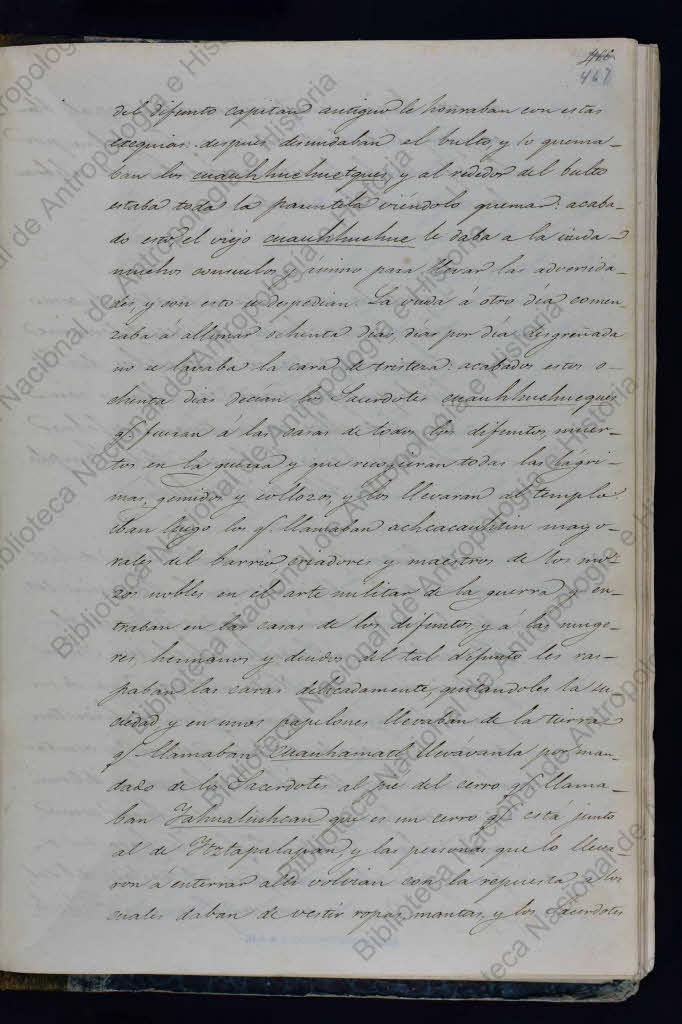 466
467
del difunto capitan antiguo le honraban con estas
exequias: despues desnudaban el bulto, y lo quema-
ban los cuauhhuehuetques, y al rededor del bulto
estaba toda la parentela viéndolo quemar: acaba-
do esto, el viejo cuauhhuehue le daba a la viuda
muchos consuelos y ánimo para llevar las adversida-
des, y con esto se despedian. La viuda á otro dia comen-
zaba á allunar ochenta dias, dias por dia desgreñada
no se lavaba la cara de tristeza: acabados estos o-
chenta dias decian los Sacerdotes cuauhhuehueques
q.e fueran a las casas de todos los difuntos, muer-
tos en la guerra y que recogieran todas las lágri-
mas, gemidos y sollozos, y los llevaran al templo.
Iban luego los q.e llamaban achcacauhtin mayo-
rales del barrio criadores y maestros de los mo-
zos nobles en el arte militar de la guerra, y en-
traban en las casas de los difuntos, y á las muge-
res, hermanos y deudos del tal difunto les ras-
paban las caras delicadamente, quitandoles la su-
ciedad y en unos papelones llevaban de la tierra
q.e llamaban Cuauhamatl, llevávanla por man-
dado de los Sacerdotes al pie del cerro q.e llama-
ban Yahualiuhcan que es un cerro q.e está junto
al de Yztapalapan, y las personas que lo lleva-
ron á enterrar alli volvian con la repuesta a los
cuales daban de vestir ropas, mantas, y los Sacerdotes
Biblioteca Nacional de Antropología e Historia